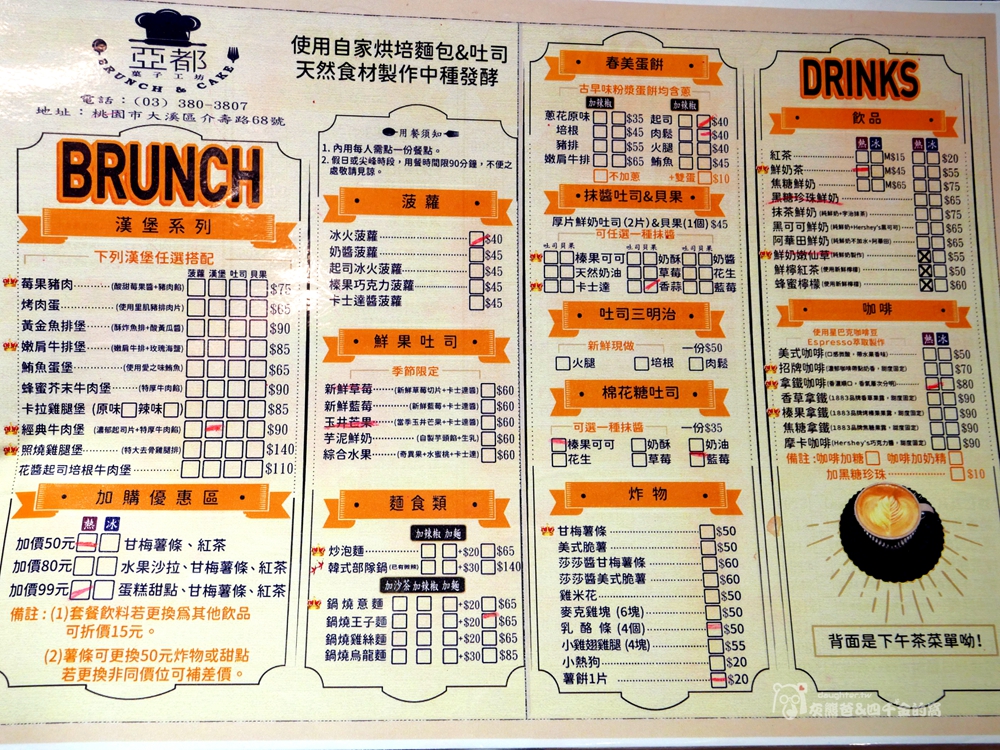 亞都
菓子工坊
BRUNCH & CAKE
電話：(03) 380-3807
地址：桃園市大溪區介壽路68號
使用自家烘培麵包&吐司
天然食材製作中種發酵
BRUNCH
漢堡系列
下列漢堡任選搭配
菠蘿 漢堡 吐司 貝果
莓果豬肉 (酸甜莓果醬+豬肉餡) $75
烤肉蛋 (使用里肌豬排肉片) $65
黃金魚排堡 (酥炸魚排+酸黃瓜醬) $90
嫩肩牛排堡 (嫩肩牛排+玫瑰海鹽) $85
鮪魚蛋堡 (使用愛之味鮪魚) $65
蜂蜜芥末牛肉堡 (特厚牛肉餡) $90
卡拉雞腿堡 (原味 辣味) $85
經典牛肉堡 (濃郁起司片+特厚牛肉餡) $90
照燒雞腿堡 (特大去骨雞腿排) $140
花醬起司培根牛肉堡 $110
加購優惠區
熱 冰
加價50元 甘梅薯條、紅茶
加價80元 水果沙拉、甘梅薯條、紅茶
加價99元 蛋糕甜點、甘梅薯條、紅茶
備註：(1)套餐飲料若更換為其他飲品
可折價15元。
(2)薯條可更換50元炸物或甜點
若更換非同價位可補差價。
用餐須知
1. 內用每人需點一份餐點。
2. 假日或尖峰時段，用餐時間限90分鐘，不便之
處敬請見諒。
菠蘿
冰火菠蘿 $40
奶醬菠蘿 $45
起司冰火菠蘿 $45
榛果巧克力菠蘿 $45
卡士達醬菠蘿 $45
鮮果吐司
季節限定
新鮮草莓 (新鮮草莓切片+卡士達醬) $60
新鮮藍莓 (新鮮藍莓+卡士達醬) $60
玉井芒果 (當季玉井芒果+卡士達醬) $60
芋泥鮮奶 (自製芋頭餡+生乳) $60
綜合水果 (奇異果+水蜜桃+卡士達) $60
麵食類
加辣椒 加麵
炒泡麵 +$20 $65
韓式部隊鍋 (已有微辣) +$30 $140
加沙茶 加辣椒 加麵
鍋燒意麵 +$20 $65
鍋燒王子麵 +$20 $65
鍋燒雞絲麵 +$20 $65
鍋燒烏龍麵 +$30 $85
春美蛋餅
古早味粉漿蛋餅均含蔥
加辣椒 加辣椒
蔥花原味 $35 起司 $40
培根 $45 肉鬆 $40
豬排 $55 火腿 $40
嫩肩牛排 $65 鮪魚 $45
不加蔥 +雙蛋 $10
抹醬吐司&貝果
厚片鮮奶吐司(2片)&貝果(1個) $45
可任選一種抹醬
吐司 貝果 吐司 貝果 吐司 貝果
榛果可可 奶酥 奶醬
天然奶油 草莓 花生
卡士達 香蒜 藍莓
吐司三明治
新鮮現做 一份$50
火腿 培根 肉鬆
棉花糖吐司
可選一種抹醬 一份$35
榛果可可 奶酥 奶油
花生 草莓 藍莓
炸物
甘梅薯條 $50
美式脆薯 $50
莎莎醬甘梅薯條 $60
莎莎醬美式脆薯 $60
雞米花 $50
麥克雞塊 (6塊) $50
乳酪條 (4個) $50
小雞翅雞腿 (4塊) $55
小熱狗 $20
薯餅1片 $20
DRINKS
飲品
熱 冰 熱 冰
紅茶 M$15 $20
鮮奶茶 M$45 $55
焦糖鮮奶 M$65 $75
黑糖珍珠鮮奶 $65
抹茶鮮奶 (純鮮奶+宇治抹茶) $75
黑可可鮮奶 (純鮮奶+Hershey's黑可可) $65
阿華田鮮奶 (純鮮奶不加水+阿華田) $65
鮮奶嫩仙草 (純鮮奶製作) $55
鮮檸紅茶 (使用新鮮檸檬) $50
蜂蜜檸檬 (使用新鮮檸檬) $60
咖啡
使用星巴克咖啡豆
Espresso萃取製作
熱 冰
美式咖啡 (口感微酸，帶水果香味) $50
招牌咖啡 (濃郁咖啡帶點奶香，甜度固定) $70
拿鐵咖啡 (香濃順口，香氣層次分明) $80
香草拿鐵 (1883品牌香草果露，甜度固定) $90
榛果拿鐵 (1883品牌烤榛果果露，甜度固定) $90
焦糖拿鐵 (1883品牌焦糖果露，甜度固定) $90
摩卡咖啡 (Hershey's巧克力醬，甜度固定) $90
備註：咖啡加糖 咖啡加奶精
加黑糖珍珠 $10
背面是下午茶菜單呦!
daughter.tw
灰熊爸&四千金的窩